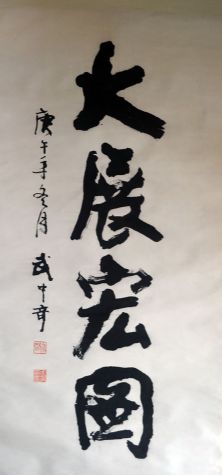 大展宏图
庚午年冬月 武中奇